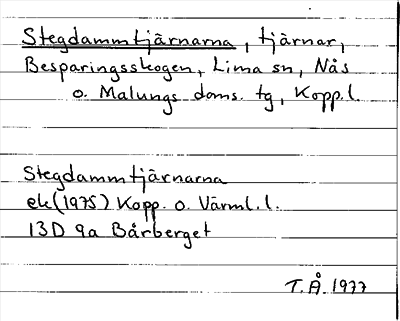 Stegdammtjärnarna, tjärnar,
Besparingsskogen, Lima sn, Nås
o. Malungs doms. tg, Kopp.l.
Stegdammtjärnarna
ek(1975) Kopp. o. Värml. l.
13D 9a Bårberget
T.Å. 1977